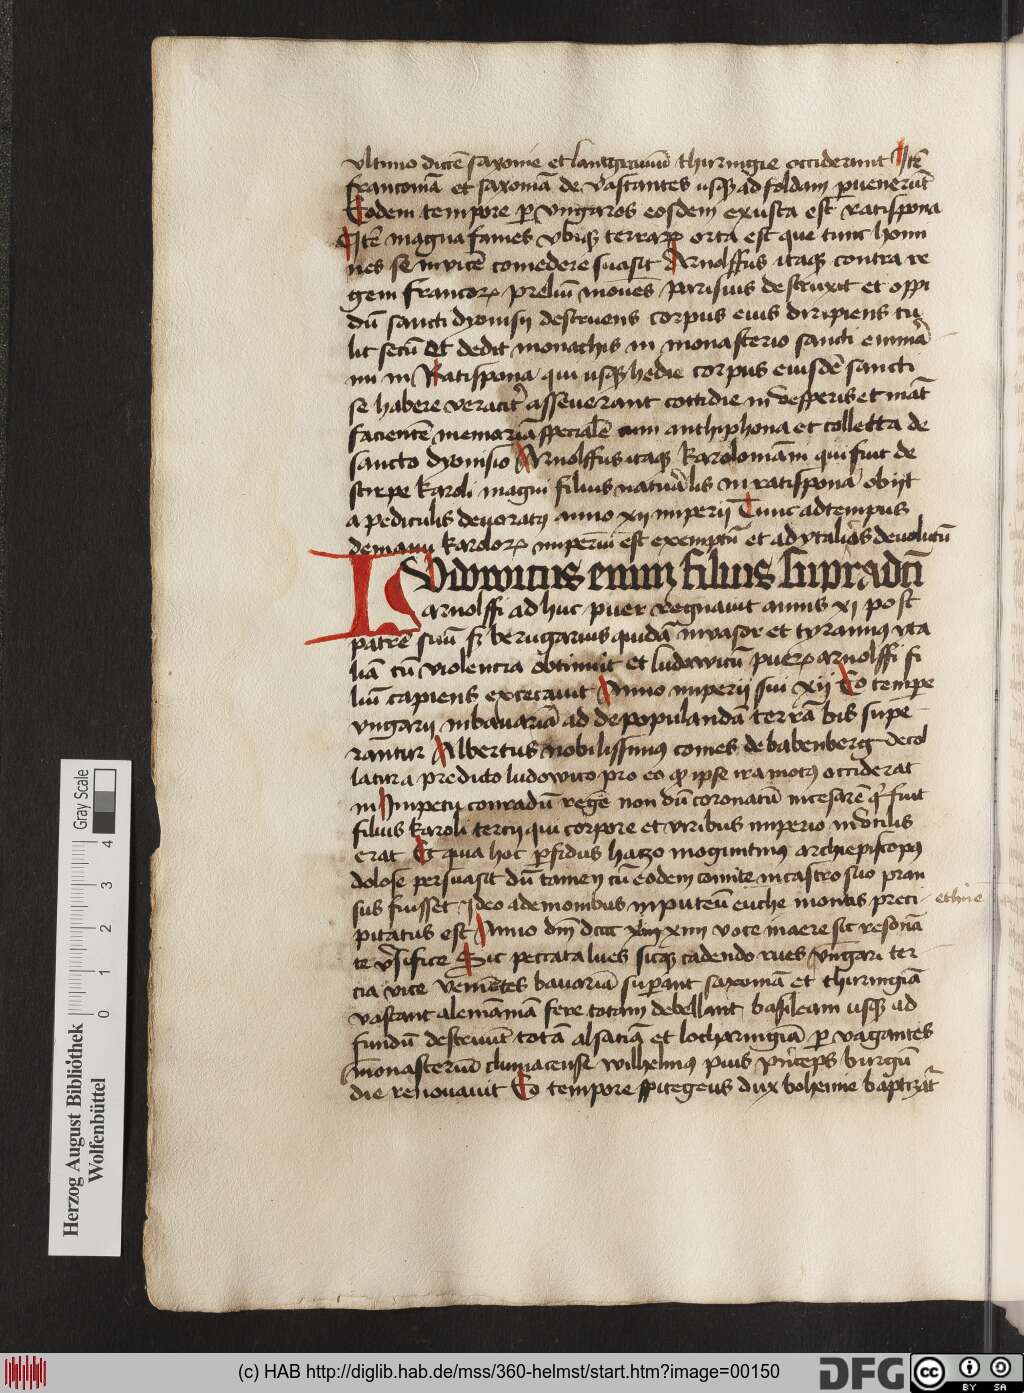 ultimo ducē saxonie et lantgraviū thuringie occiderunt Itē
franconiā et saxoniā de vastantes usq ad foldam pvenerūt
Eodem tempore p vngaros eosdem exusta est ratispona
Itē magna fames vbiq terraꝝ orta est que tunc homi
nes se invicē comedere suasit Arnolffus itaq contra re
gem francoꝝ preliū movēs parisius destruxit et oppi
dū sancti dyonisii destruens corpus eius diripiens tu
lit secū Et dedit monachis in monasterio sancti emmā
mi in Ratispona qui usq hodie corpus eiusdē sancti
se habere veracit asseverant cottidie in vesperis et mat
facientē memoriā specialē cum anthiphona et collecta de
sancto dyonisio Arnolffus itaq karolomāni qui fuit de
stirpe karoli magni filius naturalis in ratispona obiit
a pediculis devoratꝯ anno xii imperii Tunc ad tempus
de manu karoloꝝ imperiū est exemptū et ad ytalicos devolutū
LVdowicus enim filius supradcī
arnolffi ad huc puer regnavit annis xi post
patrē suū sꝫ berngarius quidā invasor et tyrannꝯ yta
liā cū violencia obtinuit et ludowicū pueꝝ arnolffi fi
liū capiens excecavit Anno imperii sui xii Eo tempe
vngarii in bavariā ad depopulandā terrā bis supe
rantur Albertus nobilissimꝯ comes de babenberg decol
latur a predicto ludowico pro eo qꝫ ipse ira motꝯ occiderat
in impetu conradū regē non dū coronatū in cesarē q fuit
filius karoli tercii qui corpore et viribus imperio inutilis
erat Et qua hoc pfidus hatzo moguntinꝯ archiepiscopꝯ
dolose persuasit dū tamen cū eodem comite in castro suo pran
sus fuisset Ideo a demonibus in puteū euche montis preci
ethne
pitatus est Anno dnī dccc xiiii voce in aere sic resonā
te vsifice Sic peccata lues sicq cadendo rues Vngari ter
cia vice venientes bavariā supant saxoniā et thuringiā
vastant alemāniā fere totam debellant basileam usq ad
fundū destruūt totā alsaciā et lotharingiā p vagantes
Monasteriū cluniacense wilhelmꝯ pius pnceps burgū
die renovavit Eo tempore spitegeus dux bohemie baptizat
Herzog August Bibliothek
Wolfenbüttel
Gray Scale
0 1 2 3 4
(c) HAB http://diglib.hab.de/mss/360-helmst/start.htm?image=00150
DFG
cc
BY SA